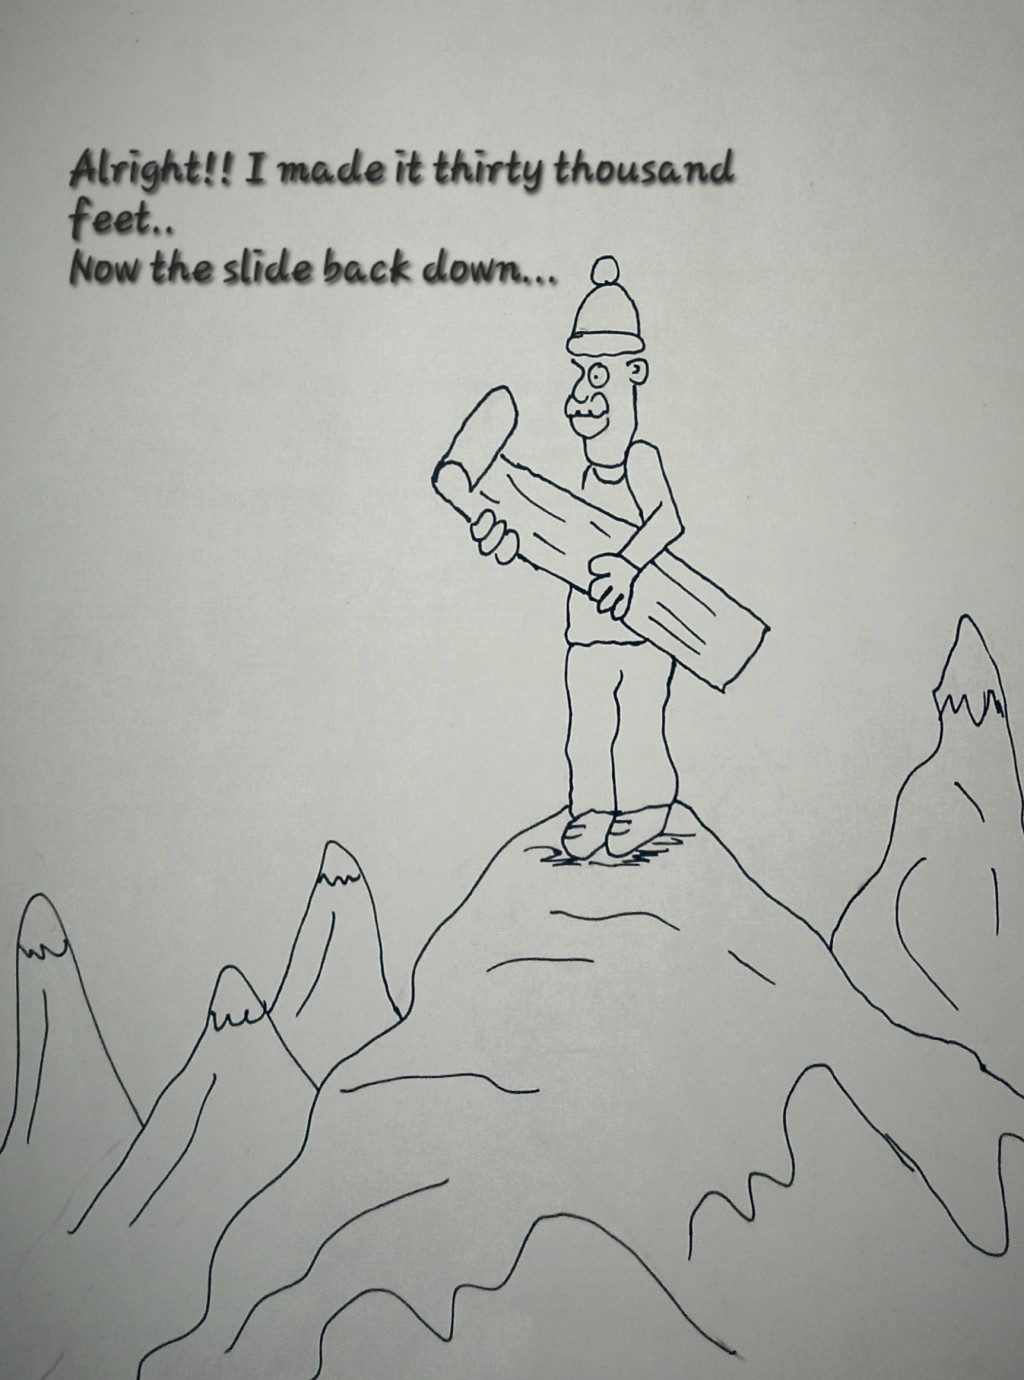 Alright!! I made it thirty thousand
feet..
Now the slide back down...